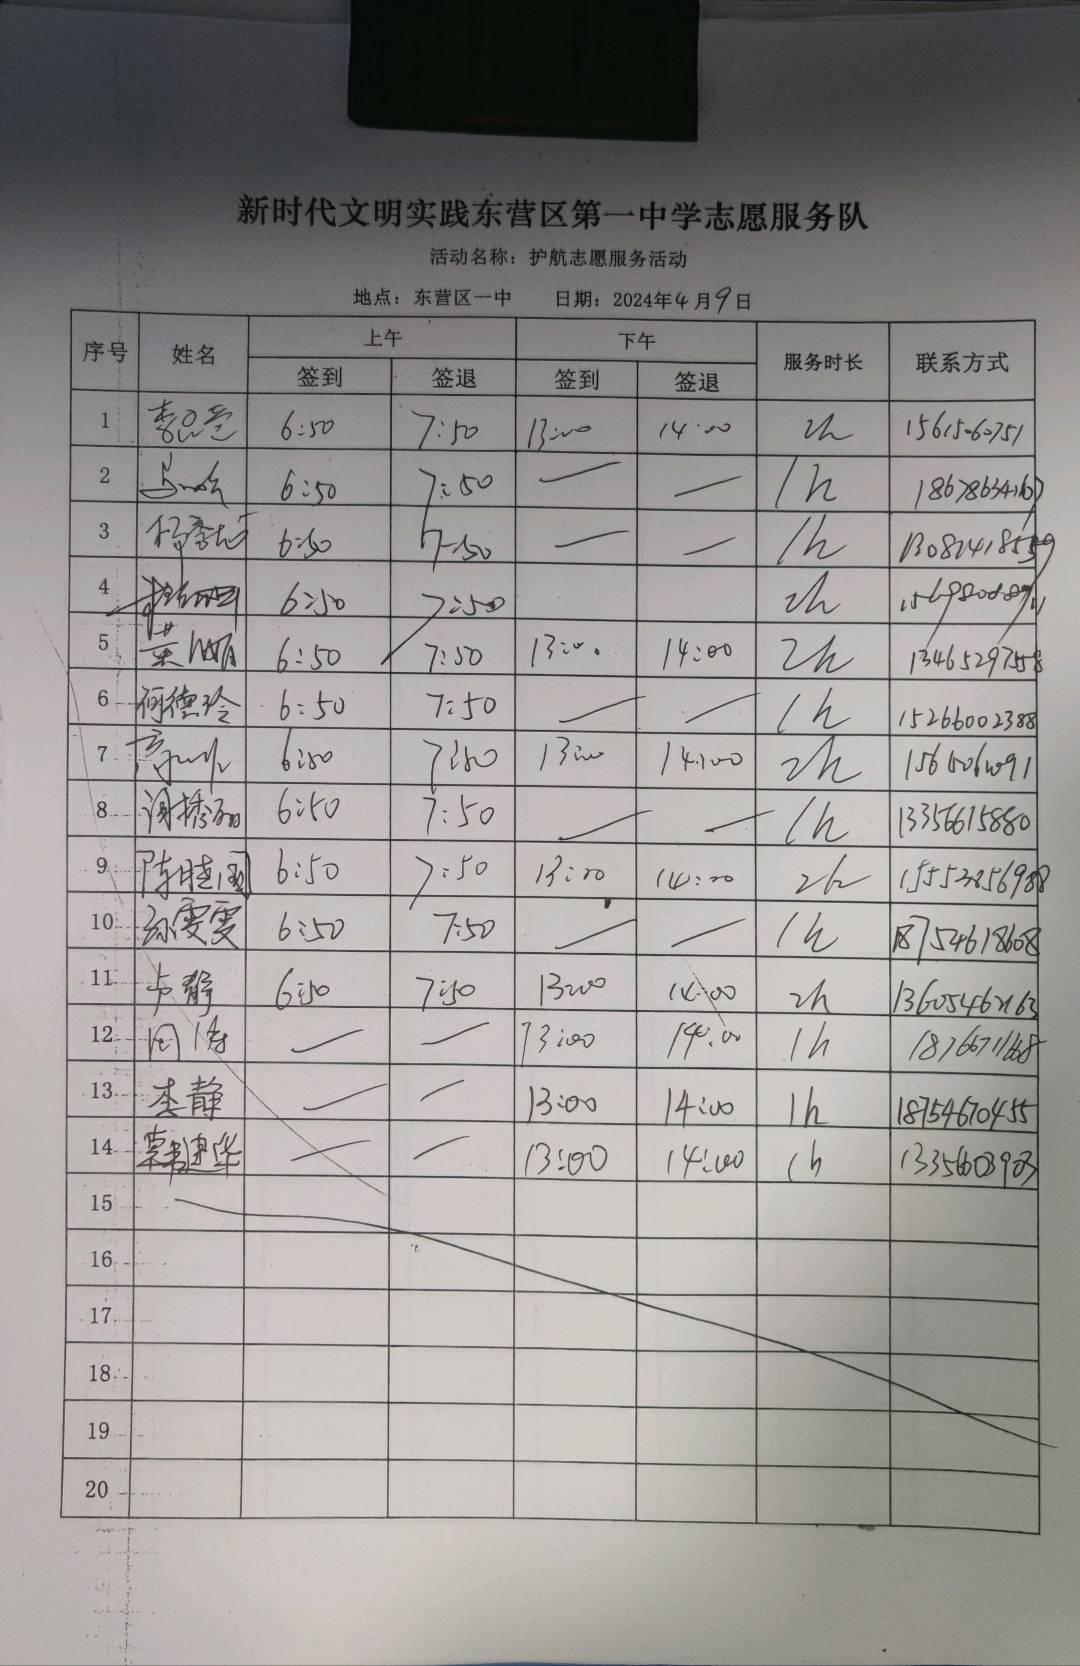 新时代文明实践东营区第一中学志愿服务队
活动名称：护航志愿服务活动
地点：东营区一中 日期：2024年4月9日
序号 姓名 上午 下午 服务时长 联系方式
签到 签退 签到 签退
1 6:50 7:50 13:00 14:00 2h 15615060751
2 6:50 7:50 — — 1h
3 6:50 7:50 — — 1h
4 6:50 7:50 2h
5 6:50 7:50 13:00 14:00 2h 13465297558
6 何德玲 6:50 7:50 — — 1h 15266002388
7 6:50 7:50 13:00 14:00 2h
8 6:50 7:50 — — 1h 13356615880
9 6:50 7:50 13:00 14:00 2h
10 孙雯雯 6:50 7:50 — — 1h 18754618608
11 卢静 6:50 7:50 13:00 14:00 2h 13605462163
12 周涛 — — 13:00 14:00 1h
13 李静 — — 13:00 14:00 1h 18754670455
14 韩建华 — — 13:00 14:00 1h 13356603903
15
16
17
18
19
20